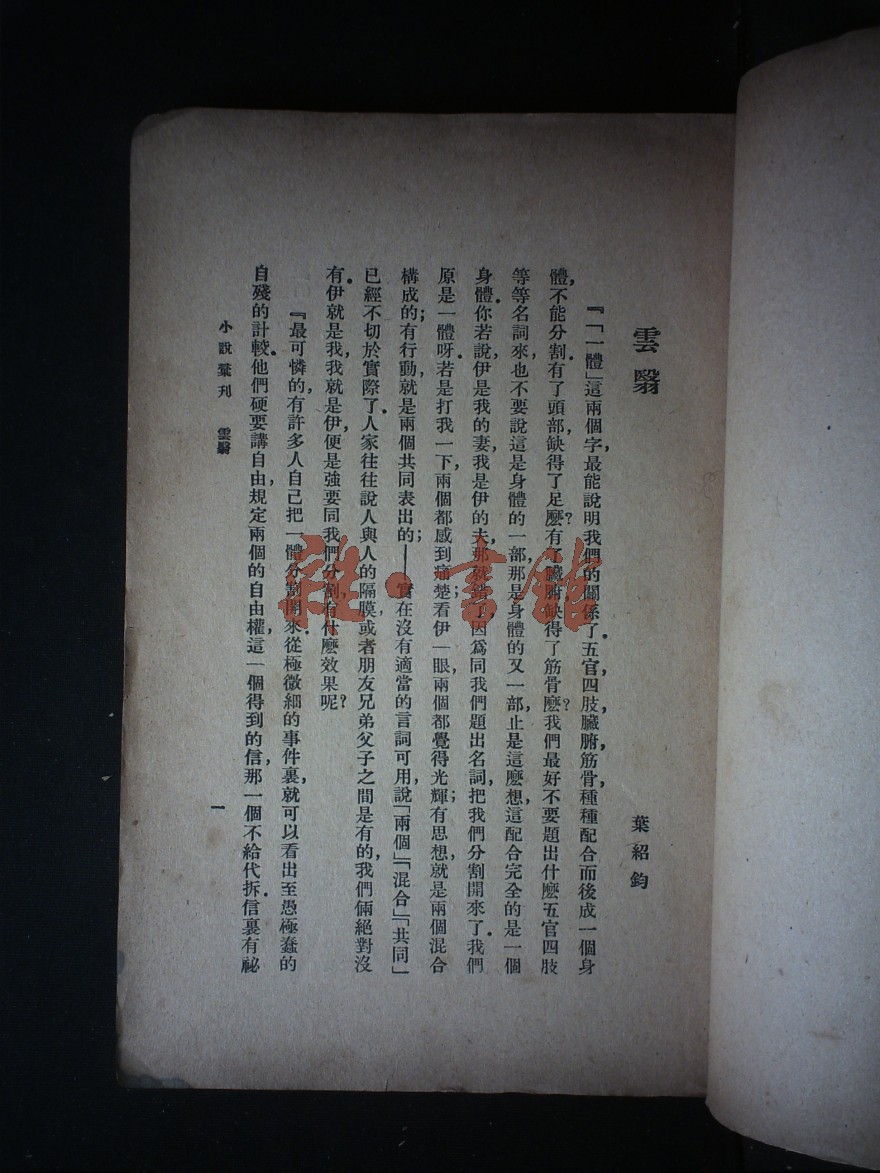 雲翳
葉紹鈞
『「一體」這兩個字，最能說明我們的關係了。五官，四肢，臟腑，筋骨，種種配合而後成一個身
體，不能分割。有了頭部，缺得了足麼？有了臟腑，缺得了筋骨麼？我們最好不要題出什麼五官四肢
等等名詞來，也不要說這是身體的一部，那是身體的又一部，止是這麼想，這配合完全的是一個
身體。你若說，伊是我的妻，我是伊的夫，那就錯了，因爲同我們題出名詞，把我們分割開來了。我們
原是一體呀。若是打我一下，兩個都感到痛楚；看伊一眼，兩個都覺得光輝；有思想，就是兩個混合
構成的；有行動，就是兩個共同表出的；——實在沒有適當的言詞可用，說「兩個」「混合」「共同」
已經不切於實際了。人家往往說人與人的隔膜，或者朋友兄弟父子之間是有的，我們倆絕對沒
有。伊就是我，我就是伊，便是強要同我們分割，有什麼效果呢？
『最可憐的，有許多人自己把一體分割開來。從極微細的事件裏，就可以看出至愚極蠢的
自殘的計較。他們硬要講自由，規定兩個的自由權，這一個得到的信，那一個不給代拆。信裏有祕
小說彙刊　雲翳
一
雜·書館